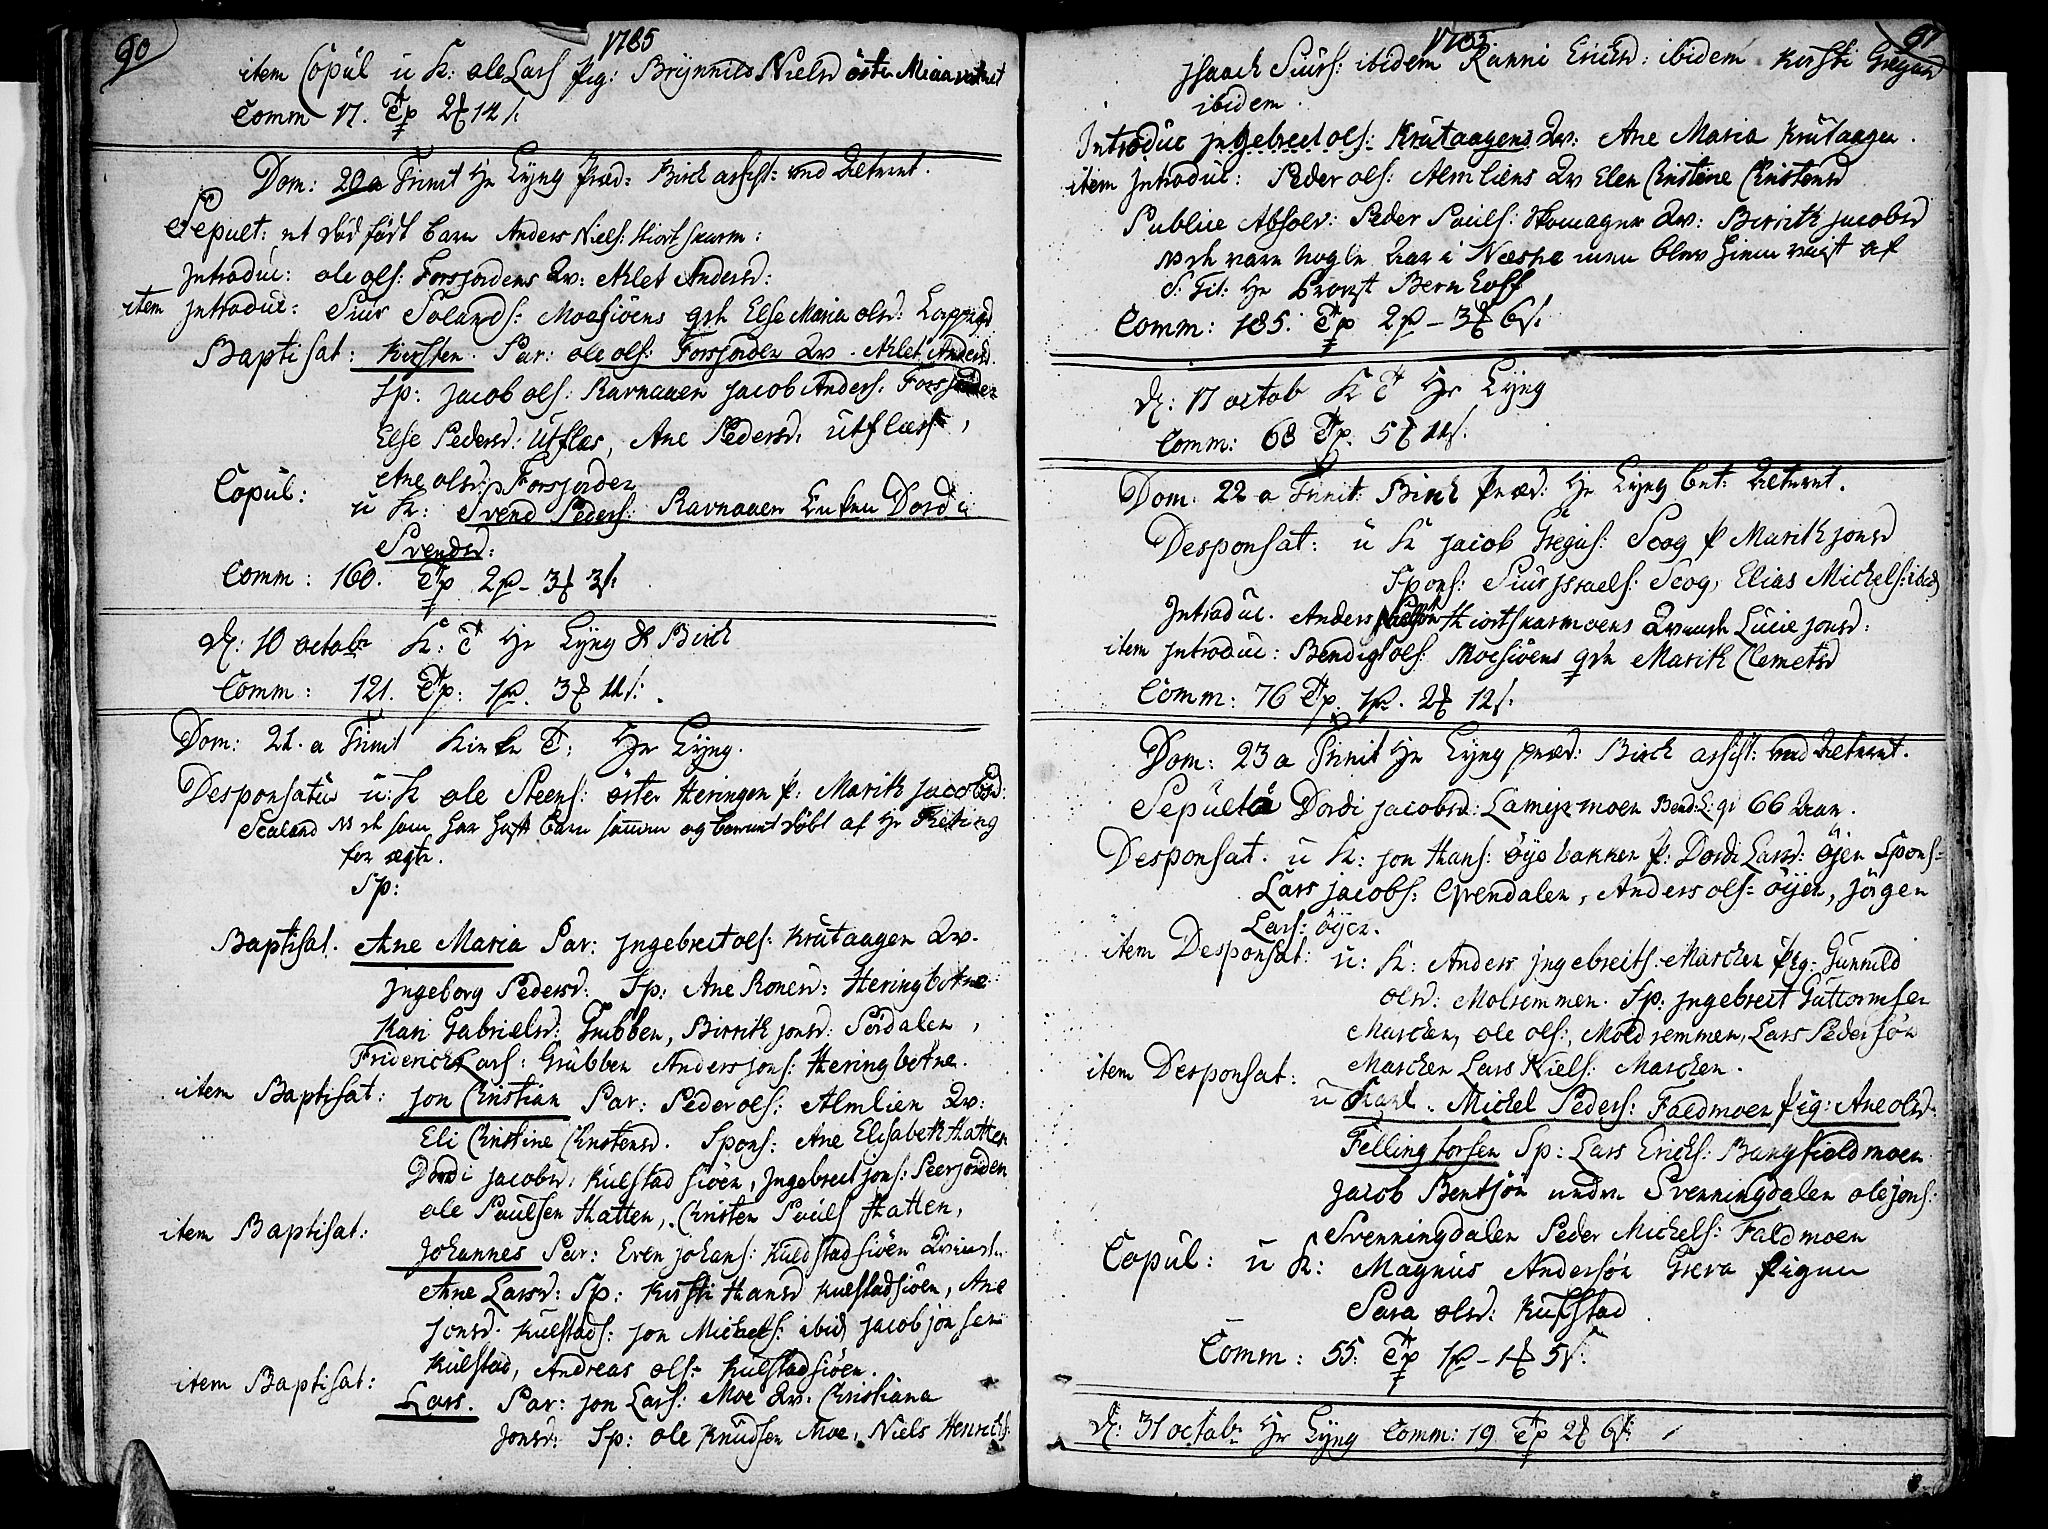 90
1785
item Copul u K: ole Lars Pig: Brynnild Nielsd öster
Comm 17. 2 12 s.
Dom: 20 a Trinit Hr Lyng Præd: Birch assist: ved Alteret.
Sepult: et død født barn Anders Niels: Hiortskarm:
Introduc: ole ols: Forsjordens Qv: Mlet Andersd:
item Introduc: Siur Solands: Moesiöens qvh Else Maria olsd:
Baptisat: Kirsten. Par: ole ols: Forsjorden Qv. Mlet Andersd
Sp: Jacob ols: Ravnaaen Jacob Anders: Forsjorden
Else Pedersd: Utflæs, Ane Pedersd:
Ane olsd: Forsjorden
Copul: u K: Svend Peders: Ravnaaen Enken Dordi
Svendsd:
Comm: 160. 2 - 3 3 s:
D: 10 octobr K: Hr Lyng & Birch
Comm: 121. 1 3 11 s:
Dom: 21. a Trinit Hr Lyng.
Desponsatur u: K ole Steens: öster Heringen P: Marith Jacobsd:
NB de som har haft barn sammen og barnet döbt af Hr
for ægte.
Sp:
Baptisat. Ane Maria Par: Ingebreit ols: Krutaagen Qv.
Ingeborg Pedersd: Sp: Ane Ronesd: Heringbotne
Kari Gabrielsd: Grubben, Birrith Jonsd: Sördalen,
Friderich Lars: Grubben Anders Jons: Heringbotne.
item Baptisat: Jon Christian Par: Peder ols: Almlien Qv:
Eli Christine Christensd. Spons: Ane Elisabeth Hatten
Dordi Jacobsd: Kulstad siöen, Ingebreit Jons:
ole Poulsen Hatten, Christen Pouls Hatten,
item Baptisat: Johannes Par: Even Johans: Kulstadsiöen
Ane Larsd: Sp: Kirsti Hansd Kulstadsiöen, Ane
Jonsd. Kulstads: Jon Michels: ibid Jacob Jonsen
Kulstad, Andreas ols: Kulstadsiöen.
item Baptisat: Lars. Par: Jon Lars: Moe Qv: Christiana
Jonsd: Sp: ole Knudsen Moe, Niels Henrichs:
1785
91
Isaach Siurs: ibidem Ranni Ericksd: ibidem Kirsti
ibidem.
Introduc Ingebreit ols: Krutaagens Qv: Ane Maria Krutaagen.
item Introduc: Peder ols: Almliens Qv Elen Christine Christensd
Publice Absolv: Peder Pouls: Skomager Qv: Birrith Jacobsd
NB de vare nogle Aar i men blev hiem viist af
S: Tit: Hr Provst Bernhoff
Comm: 185. 2 - 3 6 s:
D: 17 octob K Hr Lyng
Comm: 68 5 11 s.
Dom: 22 a Trinit: Birch Præd: Hr Lyng bet: Alteret.
Desponsat: u K Jacob Gregus: Scog P Marith Jonsd
Spons: Siur Israels: Scog, Elias Michels: ibid
Introduc. Anders Hiortskarmoens Lucie Jonsd:
item Introduc: Bendigt ols: Moesiöens qvh Marith Clemetsd
Comm: 76 1 . 2 12 s.
Dom: 23 a Trinit Hr Lyng præd: Birch assist: ved Alteret.
Sepulta Dordi Jacobsd: 66 Aar.
Desponsat. u K: Jon Hans: öye bakken P: Dordi Larsd: öjen Spons:
Lars Jacobs: Anders ols: öyen, Jörgen
Lars: öyen.
item Desponsat: u: K: Anders Ingebreits: Marchen Pig: Gunnild
olsd: Molremmen. Sp: Ingebreit Guttormsen
Marchen, ole ols: Moldremmen, Lars Pedersön
Marchen Lars Niels: Marchen.
item Desponsat: u Karl. Michel Peders: Faldmoen Pig: Ane olsd:
Fellingforsen Sp: Lars Ericks: Bangfieldmoen
Jacob Bentsön nedre Svenningdalen ole Jons:
Svenningdalen Peder Michels: Faldmoen
Copul: u K: Magnus Andersön Greva Pigen
Sara olsd: Kulstad.
Comm: 55: 1 - 1 5 s.
D: 31 octob: Hr Lyng Comm: 19 2 6 s: